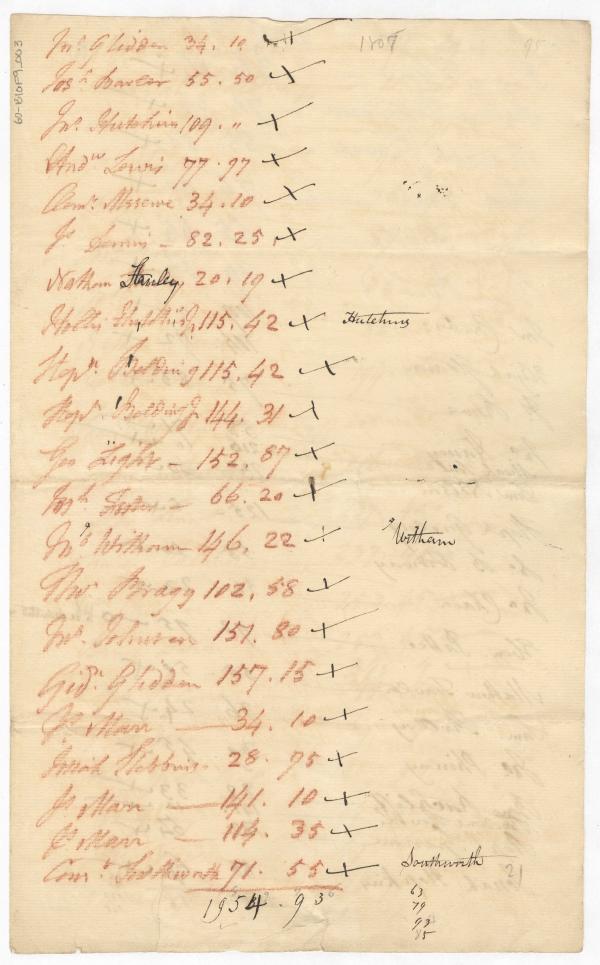 60-B10F9_003
1807 95
Jnº Glidden 34. 10
Josª Barker 55. 50
Jnº Hutchins 109. "
Andw Lewis 77. 97
Clemt Meserve 34. 10
Js Lewis - 82. 25
Nathan Stanley 20. 19
Hollis Hutchins 115. 42 Hutchins
Stepn Belding 115. 42
Stepn Belding 144. 31
Geo Light - 152. 87
Josh 66. 20
Jnº Witham 146. 22 Witham
Thos Bragg 102. 58
Jnº Johnson 151. 80
Gidn Glidden 157. 15
Js Marr — 34. 10
Stebbins 28. 75
Js Marr — 141. 10
Js Marr — 114. 35
Const Southworth 71. 55 Southworth 21
1954. 93
63
79
93
85